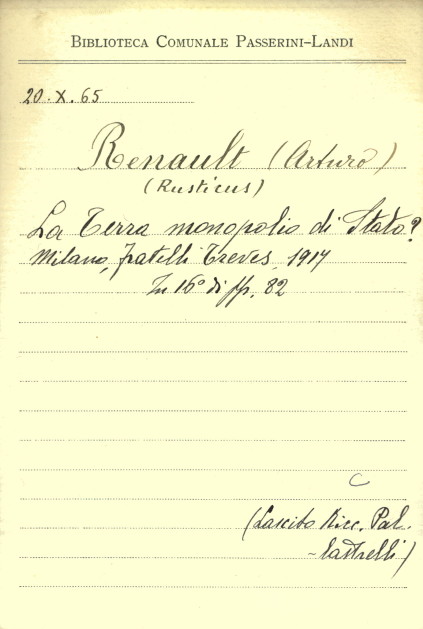 BIBLIOTECA COMUNALE PASSERINI-LANDI
20. X. 65
Renault (Arturo)
(Rusticus)
La Terra monopolio di Stato?
Milano, fratelli Treves, 1917
In 16° di pp. 82
C
(Lascito Ricc. Pal-
-lastrelli)